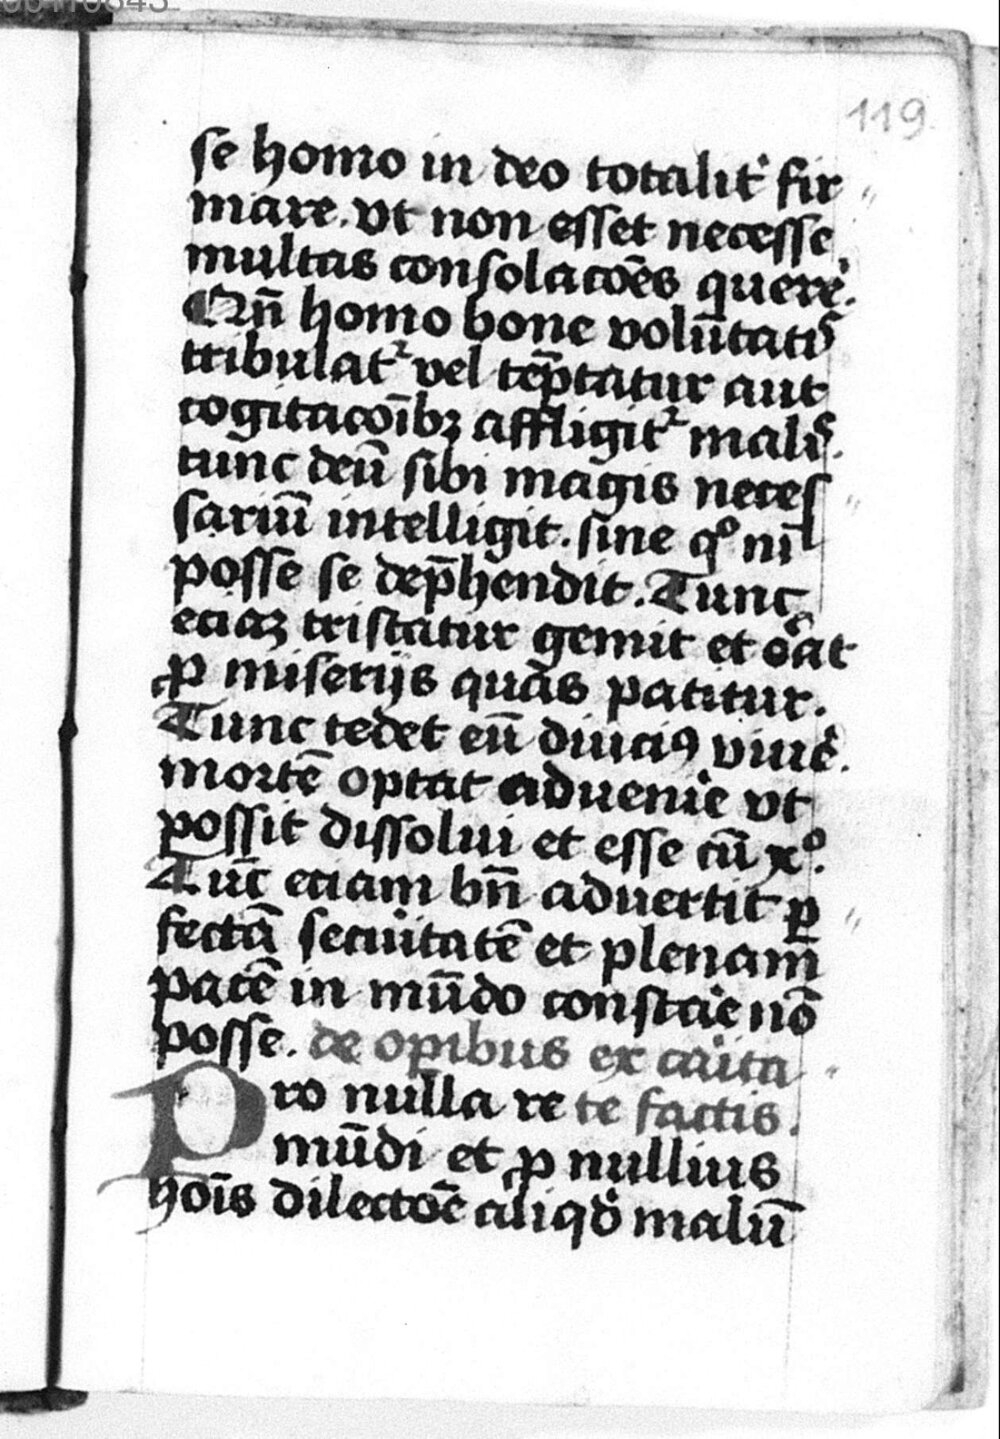 119
se homo in deo totalit̾ fir
mare. vt non esset necesse
multas consolacōes quere̾.
Qn̄ homo bone volūtatis
tribulat᷑ vel tēptatur aut
cogitacōibꝫ affligit᷑ malis.
tunc deū sibi magis neces
sariū intelligit. sine qͦ nil
posse se dep̄hendit. Tunc
eciaꝫ tristatur gemit et o̾at
ꝓ miserijs quas patitur.
Tunc tedet eū diucꝰ viue̾.
mortē optat adueni̾e vt
possit dissolui et esse cū xͦ.
Tūc eciam bn̄ aduertit ꝑ
fectā secu̾itatē et plenam̄
pacē in mūdo consta̾e nō
posse. de op̄ibus ex ca̾ita
Pro nulla re te factis.
mūdi et ꝓ nullius
hoīs dilectōe aliqd̾ malū